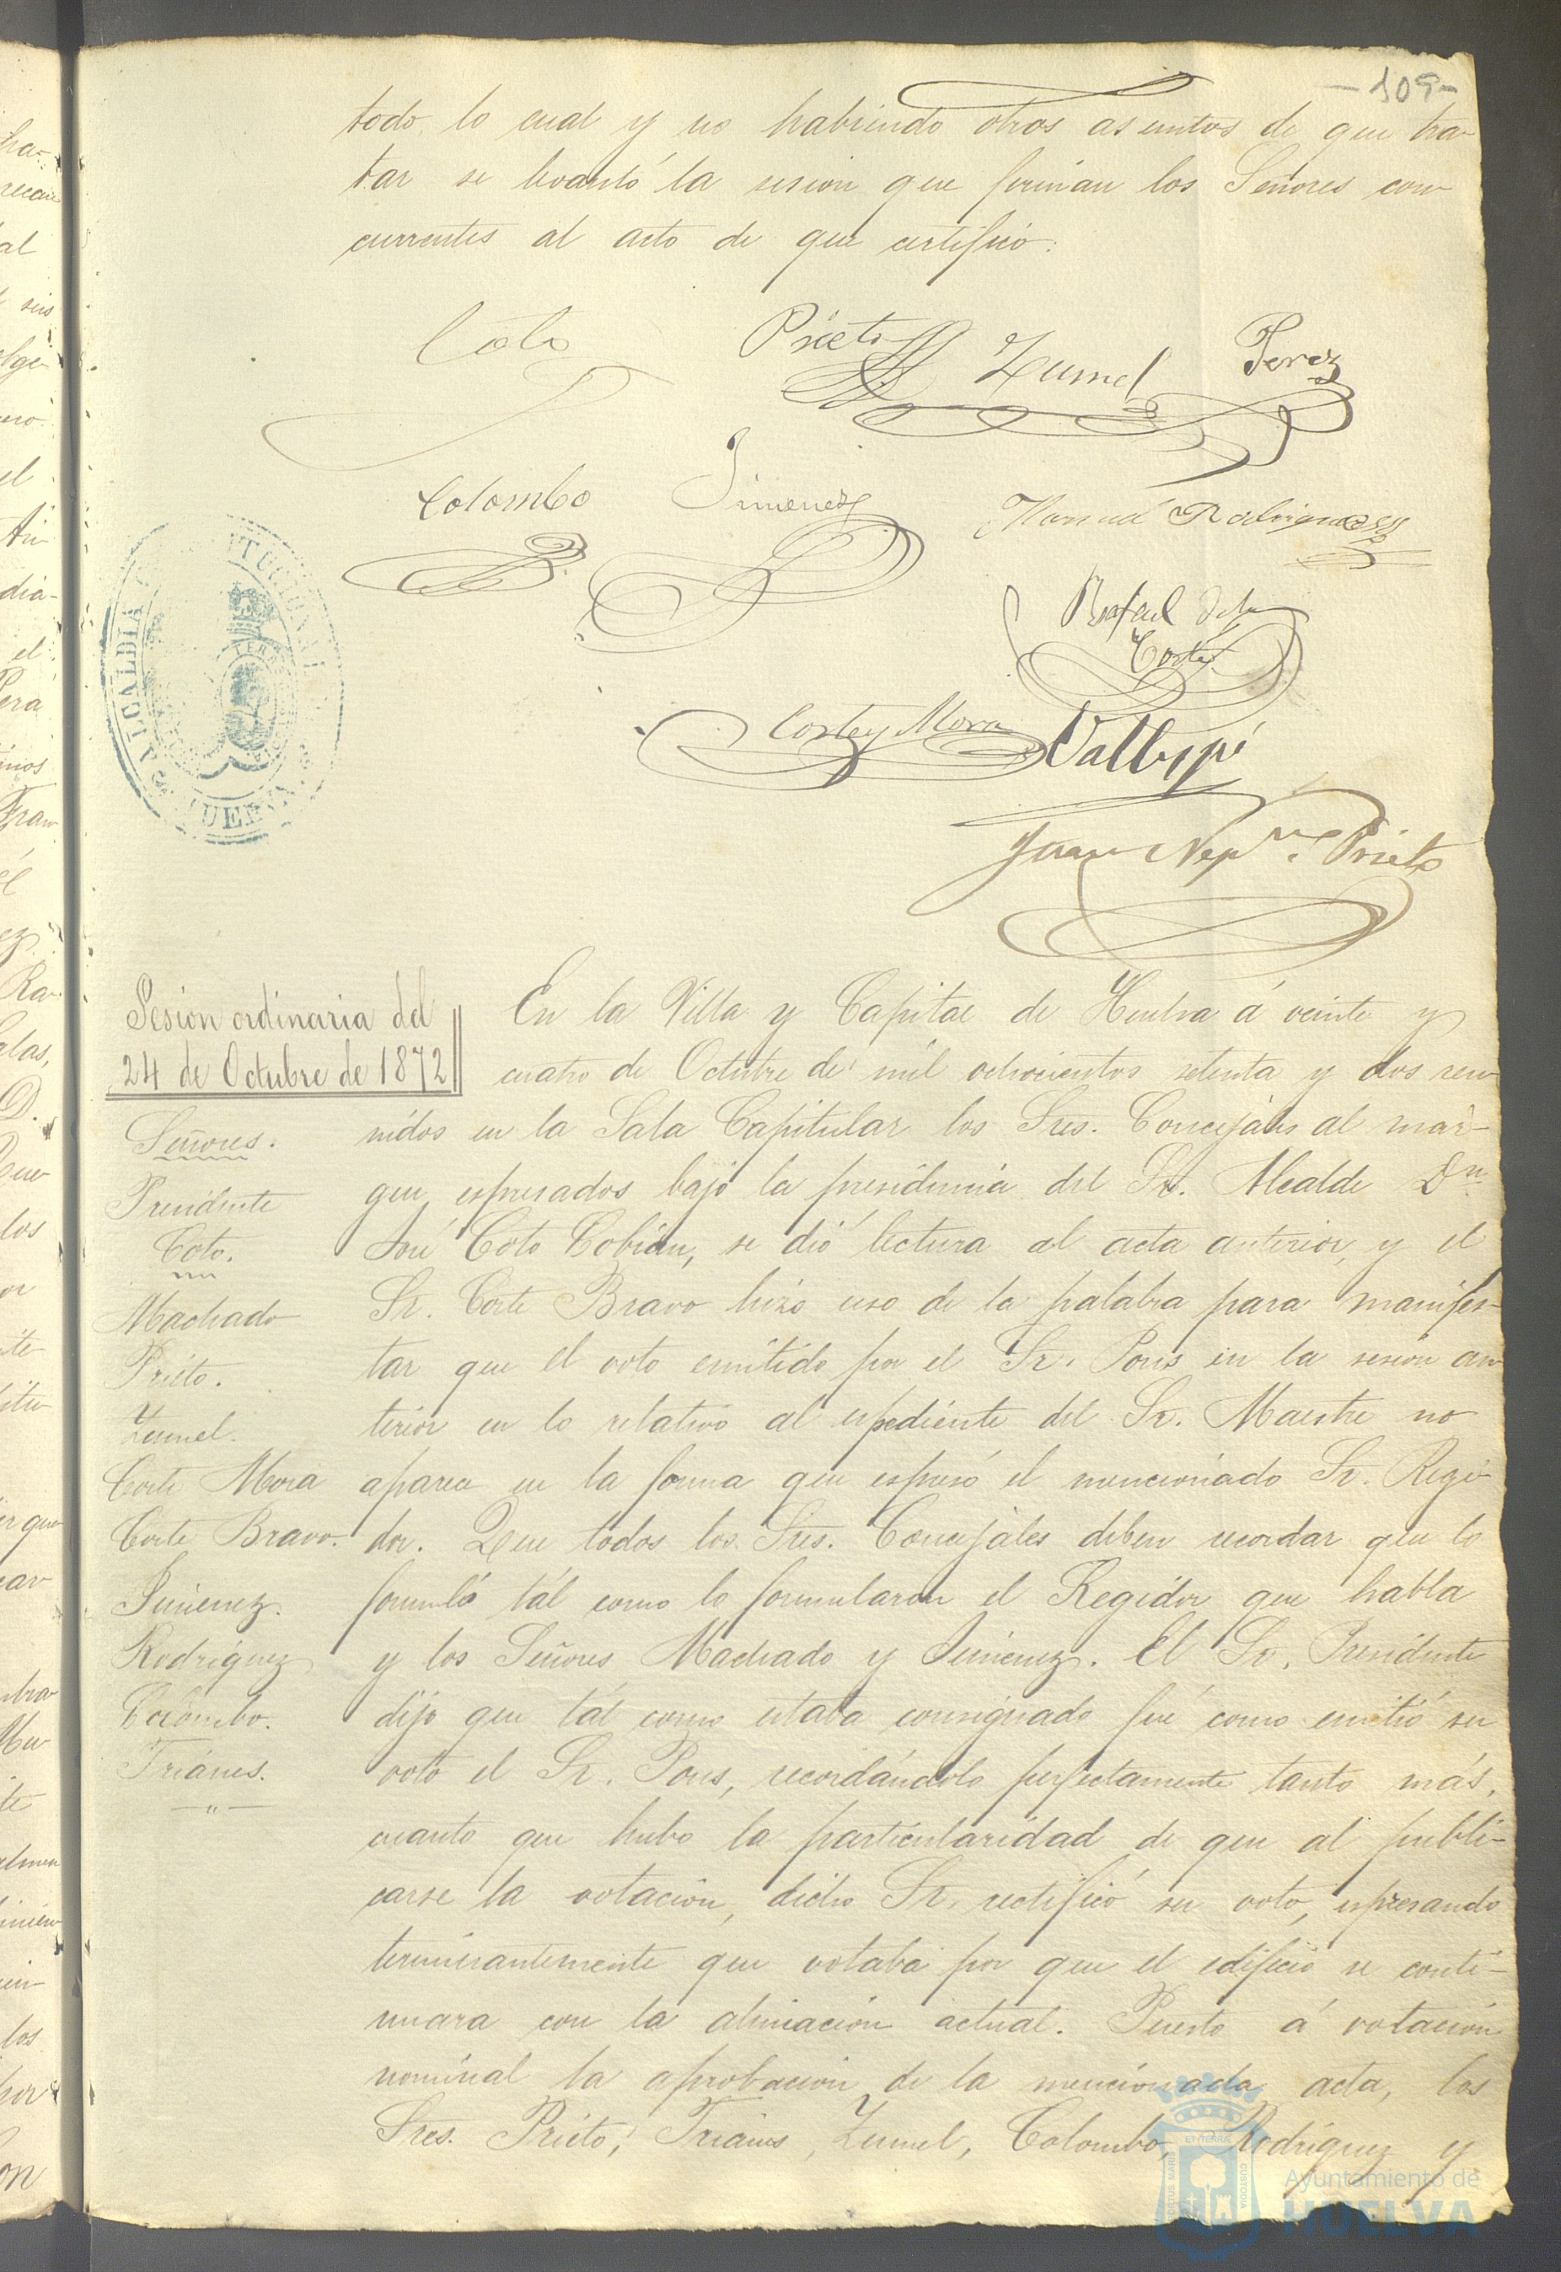 - 109 -
todo lo cual y no habiendo otros asuntos de que tra-
tar se levantó la sesion que firman los Señores con-
currentes al acto de que certifico.
Coto
Prieto
Zumel
Perez
Colombo
Jimenez
Manuel Rodriguez
Rafael de la
Corte
Corte y Mora
Vallespí
Juan Nep.no Prieto
ALCALDIA CONSTITUCIONAL
HUELVA
Sesion ordinaria del
24 de Octubre de 1872
Señores.
Presidente
Coto.
Machado
Prieto.
Zumel.
Corte Mora
Corte Bravo.
Jimenez.
Rodriguez
Colombo.
Trianes.
En la Villa y Capital de Huelva á veinte y
cuatro de Octubre de mil ochocientos setenta y dos reu-
nidos en la Sala Capitular los Sres. Concejales al már-
gen espresados bajo la presidencia del Sr. Alcalde Dn
José Coto Cobian, se dió lectura al acta anterior, y el
Sr. Corte Bravo hizo uso de la palabra para manifes-
tar que el voto emitido por el Sr. Pons en la sesion an-
terior en lo relativo al espediente del Sr. Maestre no
aparece en la forma que espresó el mencionado Sr. Regi-
dor. Que todos los Sres. Concejales deben recordar que lo
formuló tál como lo formularon el Regidor que habla
y los Señores Machado y Jimenez. El Sr. Presidente
dijo que tál como estaba consignado fué como emitió su
voto el Sr. Pons, recordándolo perfectamente tanto más,
cuanto que hubo la particularidad de que al publi-
carse la votacion, dicho Sr. rectificó su voto, espresando
terminantemente que votaba por que el edificio se conti-
nuara con la alineacion actual. Puesto á votacion
nominal la aprobacion de la mencionada acta, los
Sres. Prieto, Trianes, Zumel, Colombo, Rodriguez y
Ayuntamiento de
HUELVA